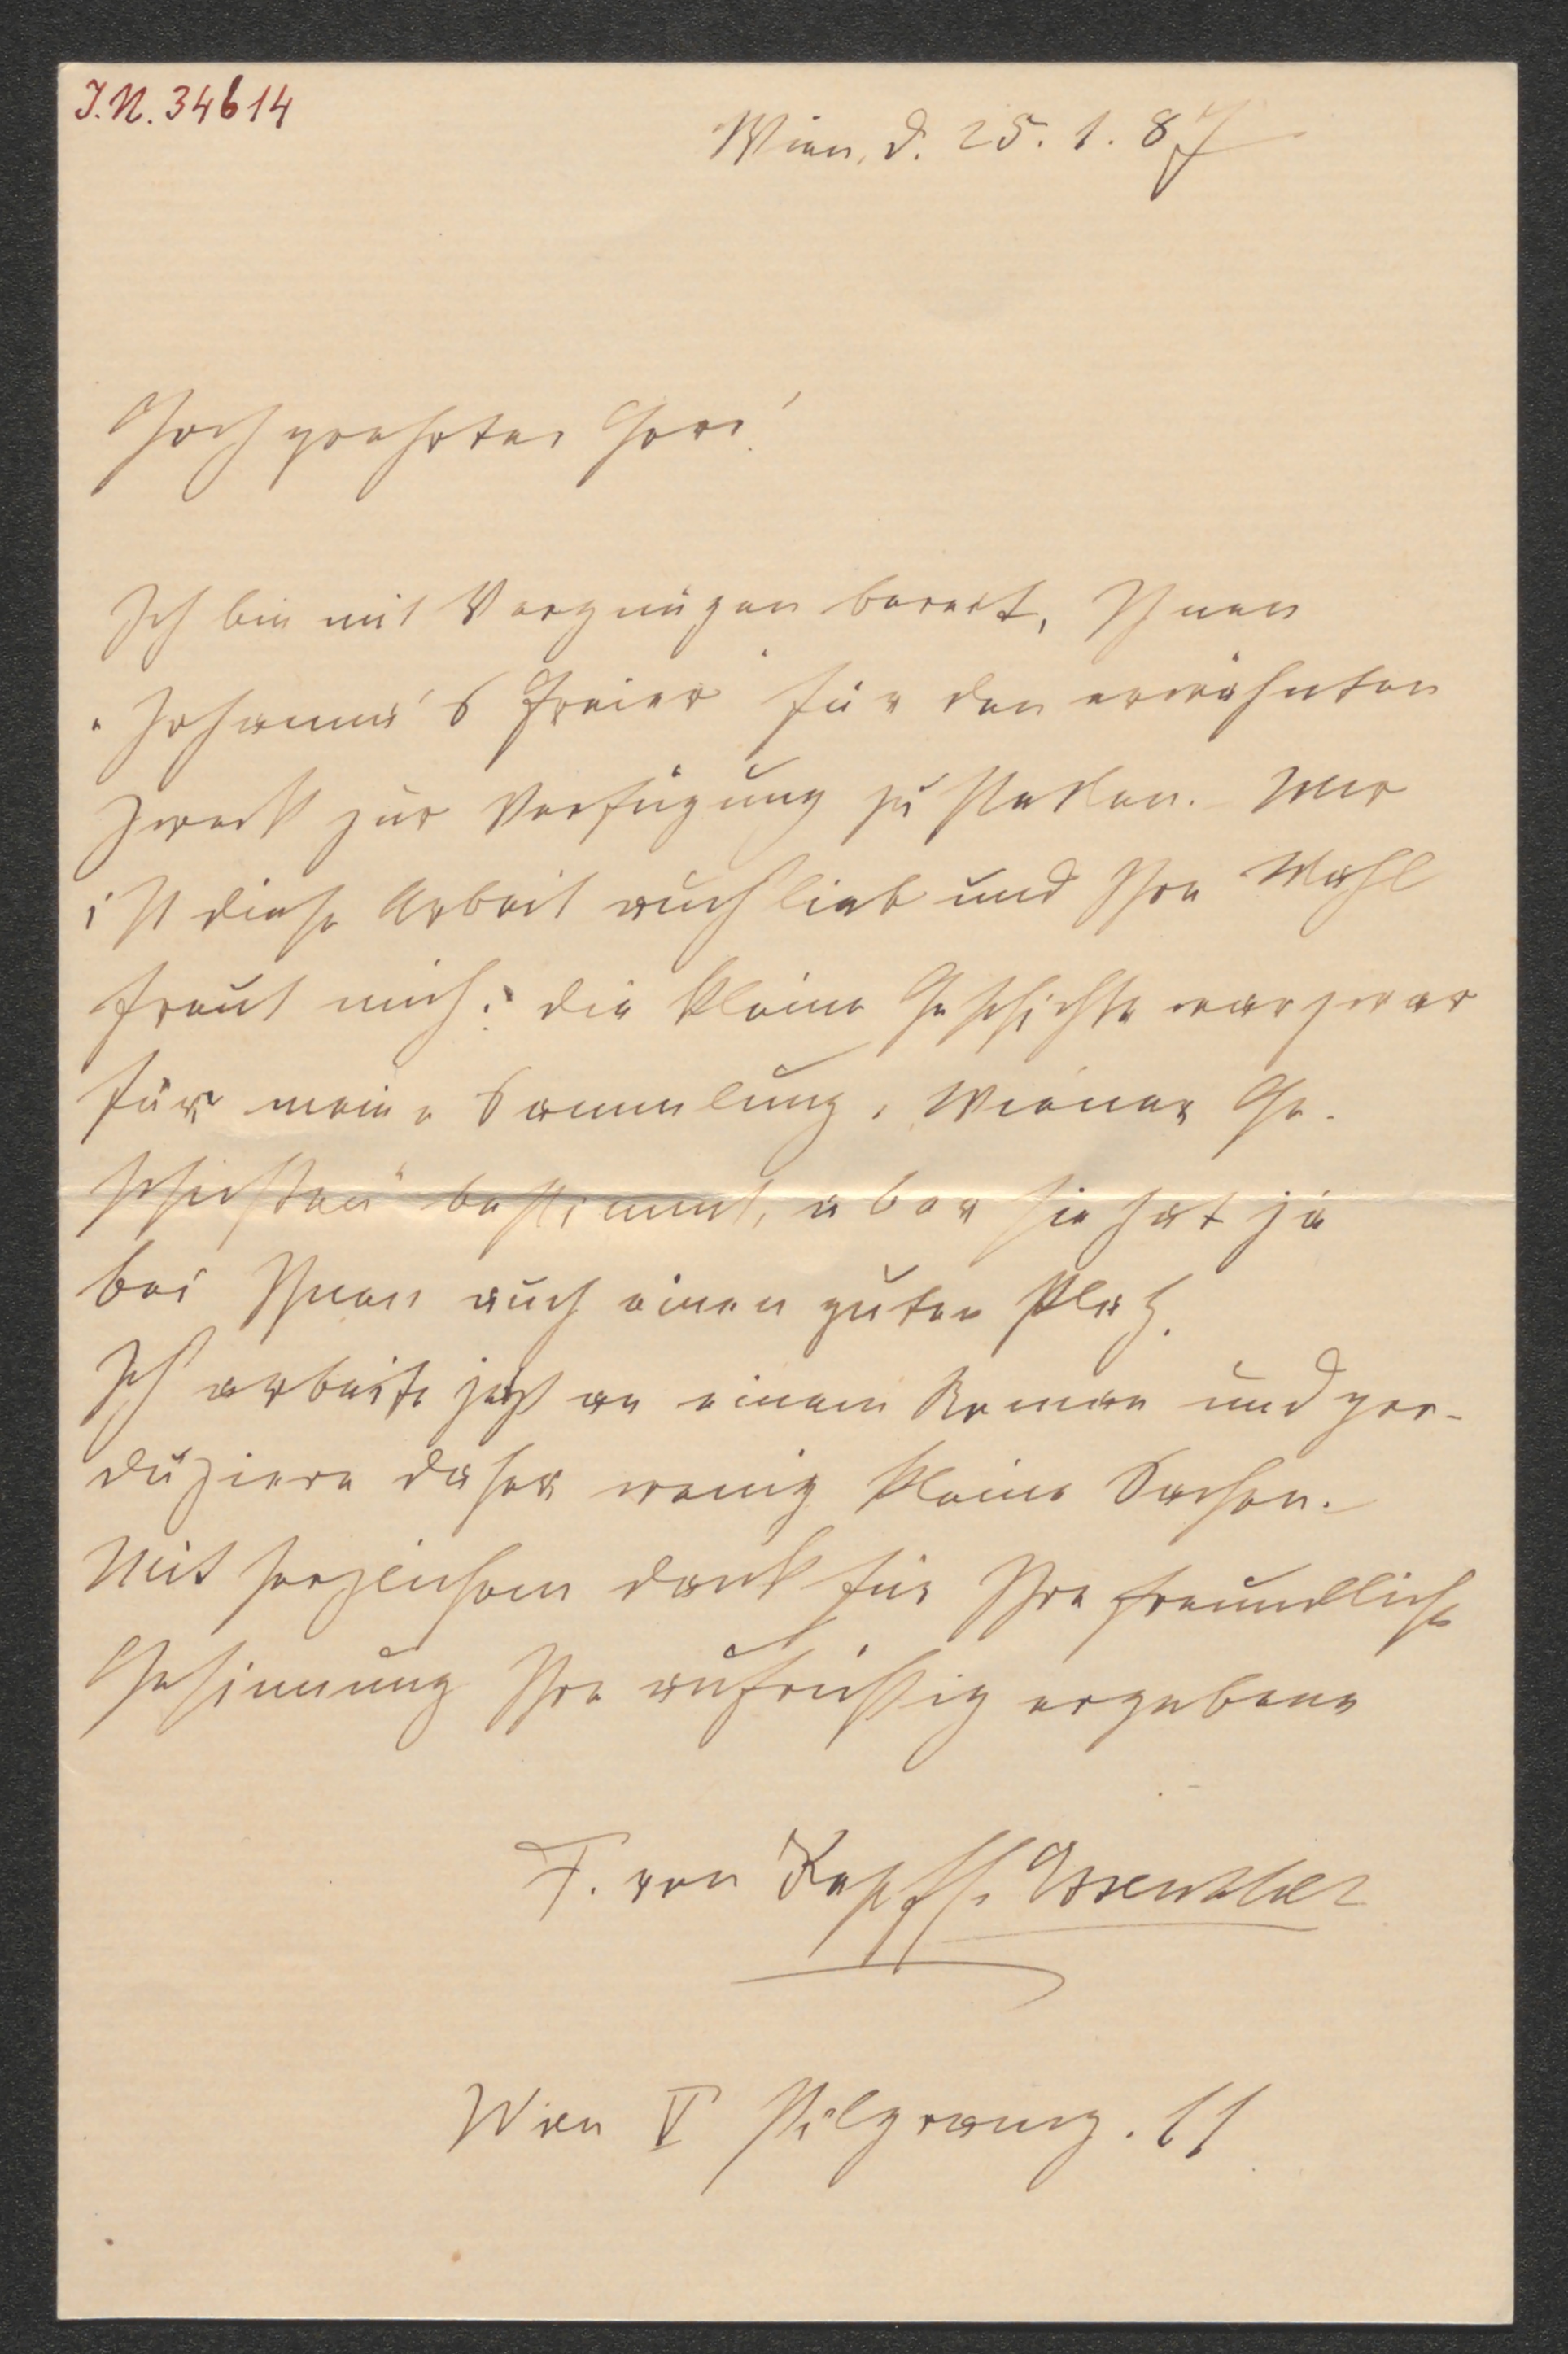 I.N. 34614
Wien, d. 25. 1. 87
Hochgeehrter Herr!
Ich bin mit Vergnügen bereit, Ihnen
„Johanna's Freier“ für den erwähnten
Zweck zur Verfügung zu stellen. Mir
ist diese Arbeit auch lieb und Ihre Wahl
freut mich; die kleine Geschichte war zwar
für meine Sammlung „Wiener Ge-
schichten“ bestimmt, aber sie hat ja
bei Ihnen auch einen guten Platz.
Ich arbeite jetzt an einem Roman und pro-
duziere daher wenig kleine Sachen.
Mit herzlichem Dank für Ihre freundliche
Gesinnung Ihre aufrichtig ergebene
F. von Kapff-Essenther
Wien V Pilgramg. 11